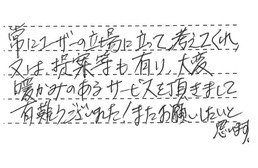 常にユーザーの立場に立って、考えてくれ、
又は、提案等も有り、大変
暖かみのあるサービスを頂きまして
有難うございました！またお願いしたいと
思います！